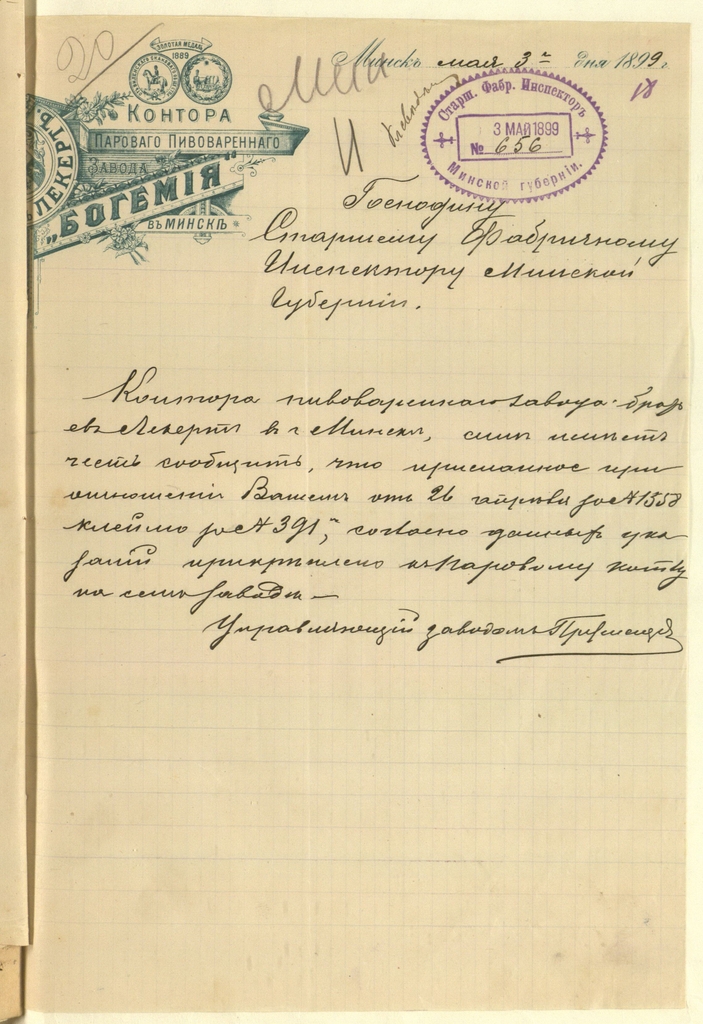 20
ЗОЛОТАЯ МЕДАЛЬ
1889
КОНТОРА
ПАРОВАГО ПИВОВАРЕННАГО
ЗАВОДА
ЛЕКЕРТЪ
„БОГЕМІЯ“
ВЪ МИНСКѢ
Минскъ мая 3 дня 1899 г.
18
Старш. Фабр. Инспекторъ
3 МАЙ 1899
№ 656
Минской губерніи.
Господину
Старшему Фабричному
Инспектору Минской
Губерніи.
Контора пивовареннаго завода брать
евъ Лекертъ въ г Минскѣ, симъ имѣетъ
честь сообщить, что присланное при
отношеніи Вашемъ отъ 26 апрѣля за № 1358
клеймо за № 391, согласно данныхъ ука
заній прикрѣплено къ паровому котлу
на семъ заводѣ —
Управляющій заводомъ